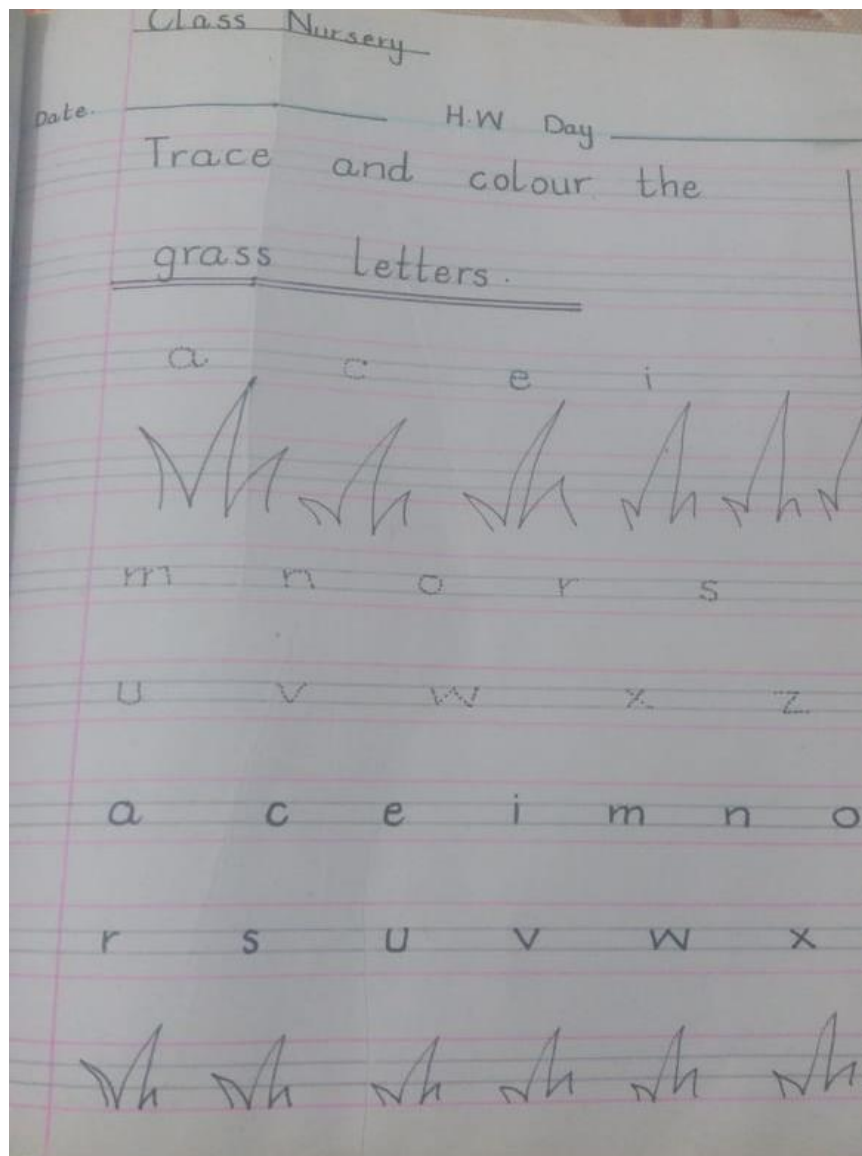 Class Nursery
Date. H.W Day
Trace and colour the
grass letters.
a c e i
m n o r s
u v w x z
a c e i m n o
r s u v w x